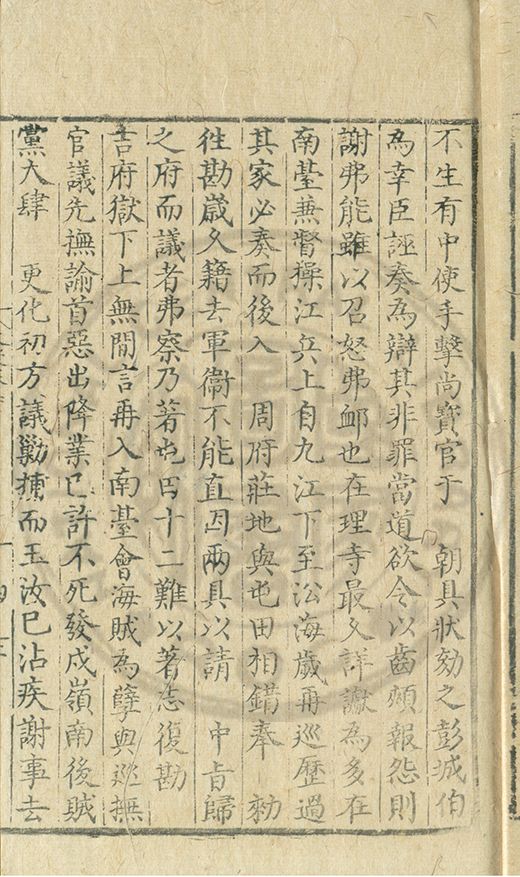 不生有中使手擊尚寶官于　朝具狀劾之彭城伯
為幸臣誣奏為辯其非罪當道欲令以齒頰報怨則
謝弗能雖以召怒弗衈也在理寺最久詳讞為多在
南臺兼督操江兵上自九江下至㳂海歲再巡歷過
其家必奏而後入　周府莊地與屯田相錯奉　勑
徃勘嵗久籍去軍衞不能直因兩具以請　中旨歸
之府而議者弗察乃著屯田十二難以著志復勘
言府獄下上無間言再入南臺會海賊為孽與巡撫
官議先撫諭首惡出降業已許不死發戍嶺南後賊
黨大肆　更化初方議勦捕而玉汝已沾疾謝事去